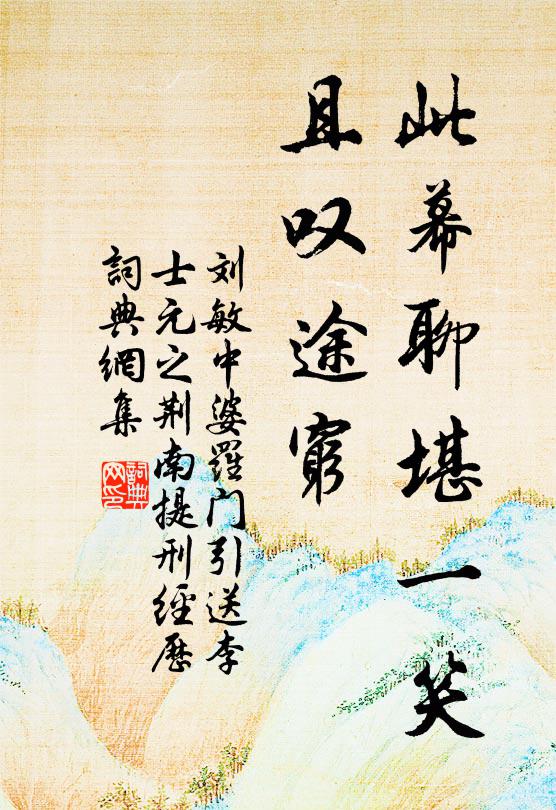 此幕聊堪一笑
且叹途穷
刘敏中婆羅门引送李
士元之荆南提刑經歷
詞典網集
詞典
网印